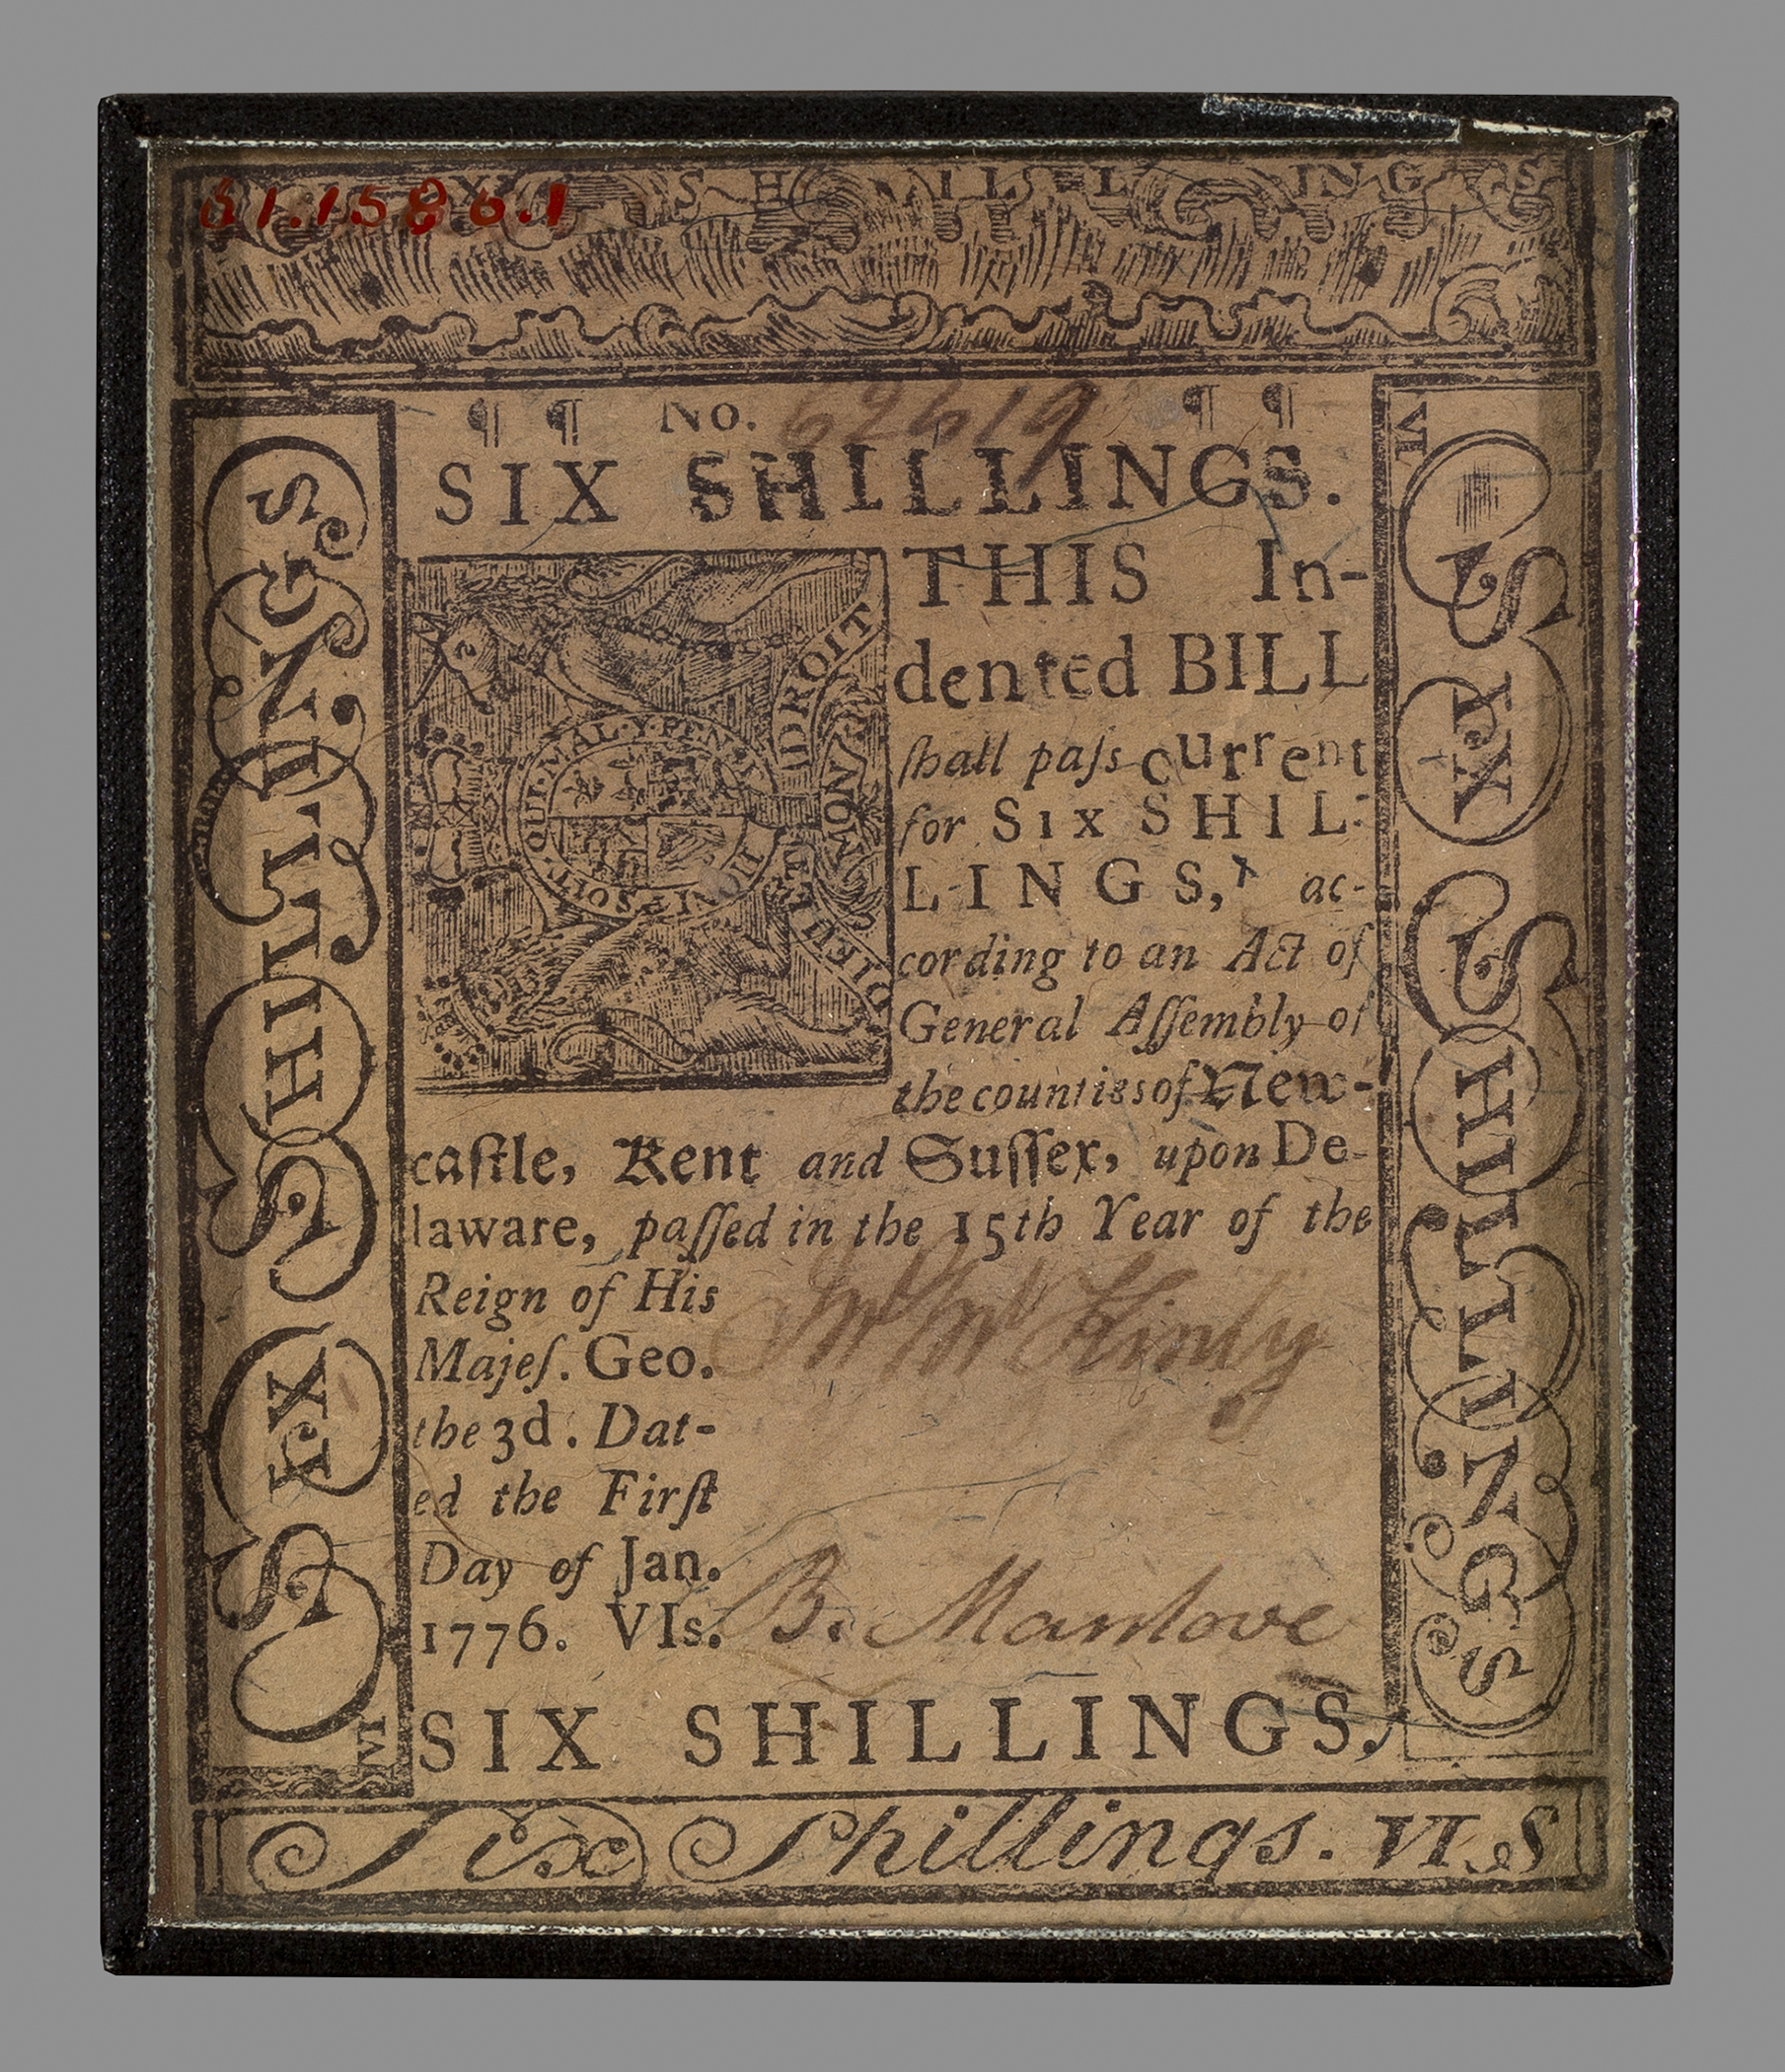 61.1586.1
SHILLINGS
¶ ¶ No. 62619 ¶ ¶
SIX SHILLINGS.
THIS In-
dented BILL
ſhall paſs current
for Six SHIL-
LINGS, ac-
cording to an Act of
General Aſſembly of
the counties of New-
caſtle, Kent and Suſſex, upon De-
laware, paſſed in the 15th Year of the
Reign of His
Majeſ. Geo.
the 3d. Dat-
ed the Firſt
Day of Jan.
1776. VIs.
Jno McKinly
B. Manlove
SIX SHILLINGS.
Six Shillings. VI.S
SIX SHILLINGS
VI SIX SHILLINGS
DIEU ET MON DROIT
HONI SOIT QUI MAL Y PENSE